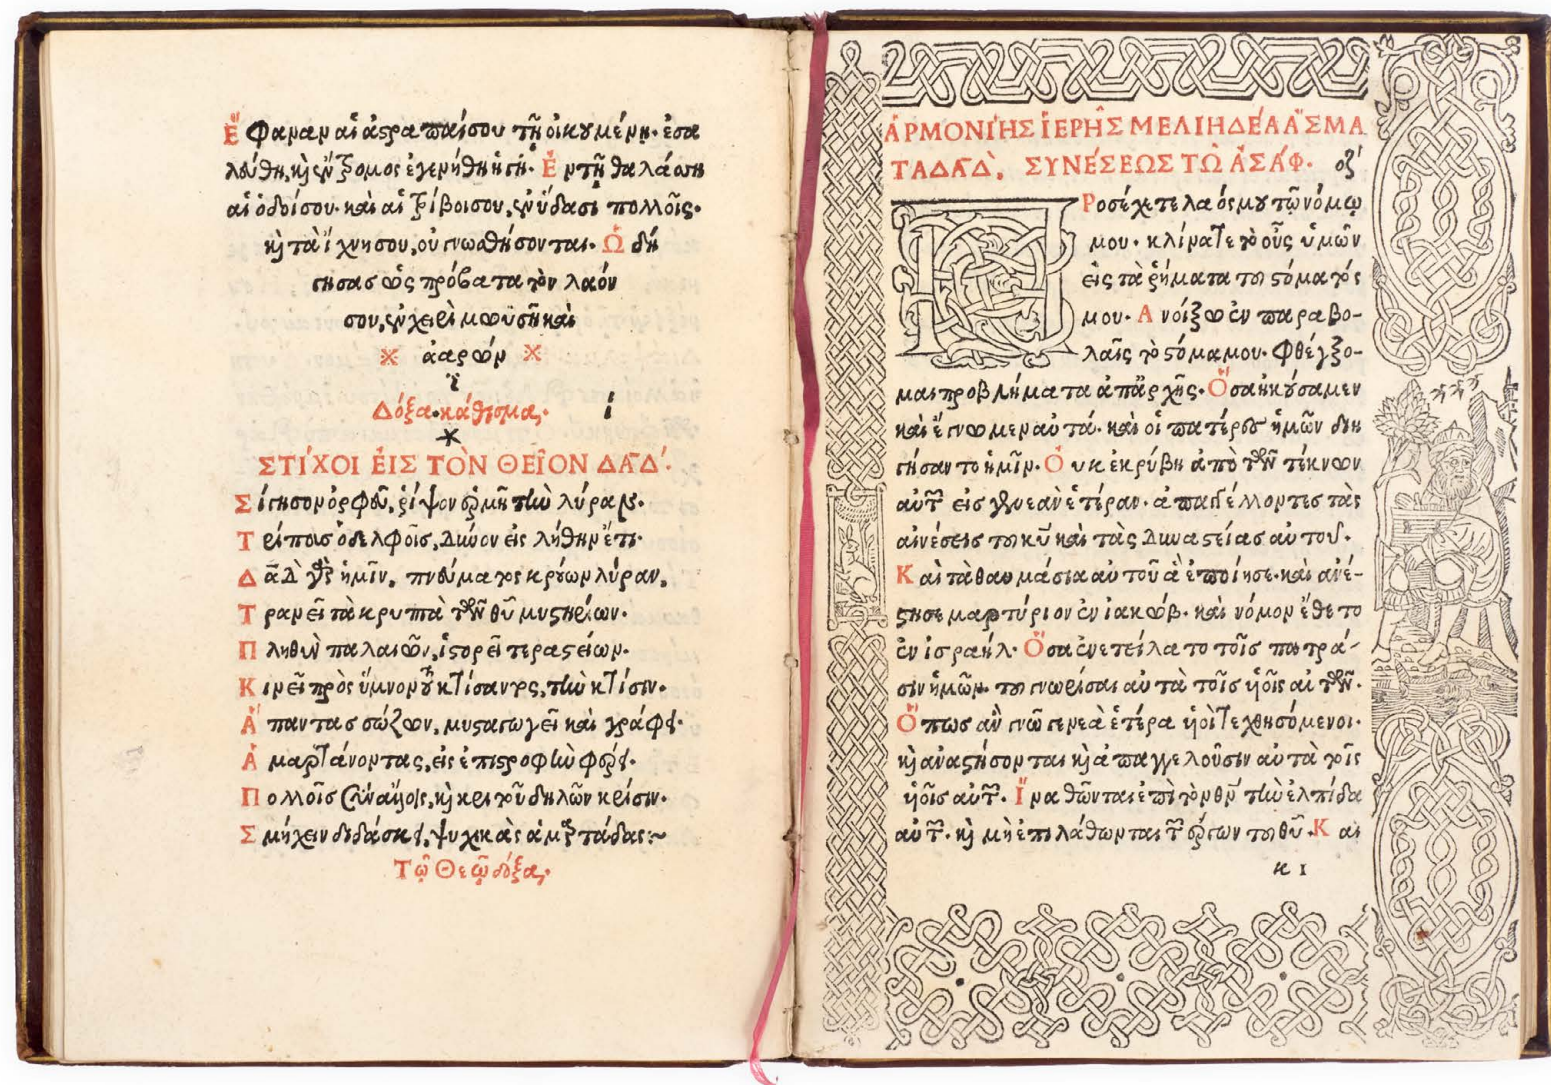 Ἔφαναν αἱ ἀστραπαί σου τῇ οἰκουμένῃ· ἐσα
λεύθη, καὶ ἔντρομος ἐγενήθη ἡ γῆ· Ἐν τῇ θαλάσσῃ
αἱ ὁδοί σου· καὶ αἱ τρίβοι σου, ἐν ὕδασι πολλοῖς·
καὶ τὰ ἴχνη σου, οὐ γνωσθήσονται· Ὡδή
γησας ὡς πρόβατα τὸν λαόν
σου, ἐν χειρὶ μωϋσῆ καὶ
ἀαρών
Δόξα· κάθισμα, ί
ΣΤΙΧΟΙ ἘΙΣ ΤΟΝ ΘΕΙΟΝ ΔΑΔ.
Σίγησον ὀρφεῦ, ῥίψον ἑρμῆ τὴν λύραν·
Τρίπους ὁ δελφοῖς, δύνον εἰς λήθην ἔτι·
Δᾱδ γὰρ ἡμῖν, πνεύματος κρούων λύραν,
Τρανεῖ τὰ κρυπτὰ τῶν θῡ μυστηρίων·
Πληθὺν παλαιῶν, ἱστορεῖ τεραστείων·
Κινεῖ πρὸς ὕμνον τοῦ κτίσαντος, τὴν κτίσιν·
Ἅπαντας σώζων, μυσταγωγεῖ καὶ γράφει·
Ἁμαρτάνοντας, εἰς ἐπιστροφὴν φέρει·
Πολλοῖς σὺν ἄλλοις, καὶ κριτοῦ δηλῶν κρίσιν·
Σμήχειν διδάσκει, ψυχικὰς ἁμαρτάδας:~
Τῷ Θεῷ δόξα,
ἉΡΜΟΝΙΗΣ ἹΕΡΗΣ ΜΕΛΙΗΔΕΑ ΑΣΜΑ
ΤΑ ΔΑΔ, ΣΥΝΕΣΕΩΣ ΤΩ ἈΣΑΦ. οζ'
Προσέχετε λαός μου τῷ νόμῳ
μου· κλίνατε τὸ οὖς ὑμῶν
εἰς τὰ ῥήματα του στόματός
μου· Ἀνοίξω ἐν παραβο-
λαῖς τὸ στόμα μου· φθέγξο-
μαι προβλήματα ἀπ' ἀρχῆς· Ὅσα ἠκούσαμεν
καὶ ἔγνωμεν αὐτά· καὶ οἱ πατέρες ἡμῶν διη
γήσαντο ἡμῖν· Οὐκ ἐκρύβη ἀπὸ τῶν τέκνων
αὐτῶν εἰς γενεὰν ἑτέραν· ἀπαγγέλλοντες τὰς
αἰνέσεις του κῡ καὶ τὰς δυναστείας αὐτοῦ·
Καὶ τὰ θαυμάσια αὐτοῦ ἃ ἐποίησε· καὶ ἀνέ-
στησε μαρτύριον ἐν ἰακώβ· καὶ νόμον ἔθετο
ἐν ἰσραήλ· Ὅσα ἐνετείλατο τοῖς πατρά-
σιν ἡμῶν· του γνωρίσαι αὐτὰ τοῖς υἱοῖς αὐτῶν·
Ὅπως ἂν γνῶ γενεὰ ἑτέρα υἱοὶ τεχθησόμενοι·
καὶ ἀναστήσονται καὶ ἀπαγγελοῦσιν αὐτὰ τοῖς
υἱοῖς αὐτῶν· Ἵνα θῶνται ἐπὶ τὸν θν̄ τὴν ἐλπίδα
αὐτῶν· καὶ μὴ ἐπιλάθωνται τῶν ἔργων του θῡ· Καὶ
κ 1